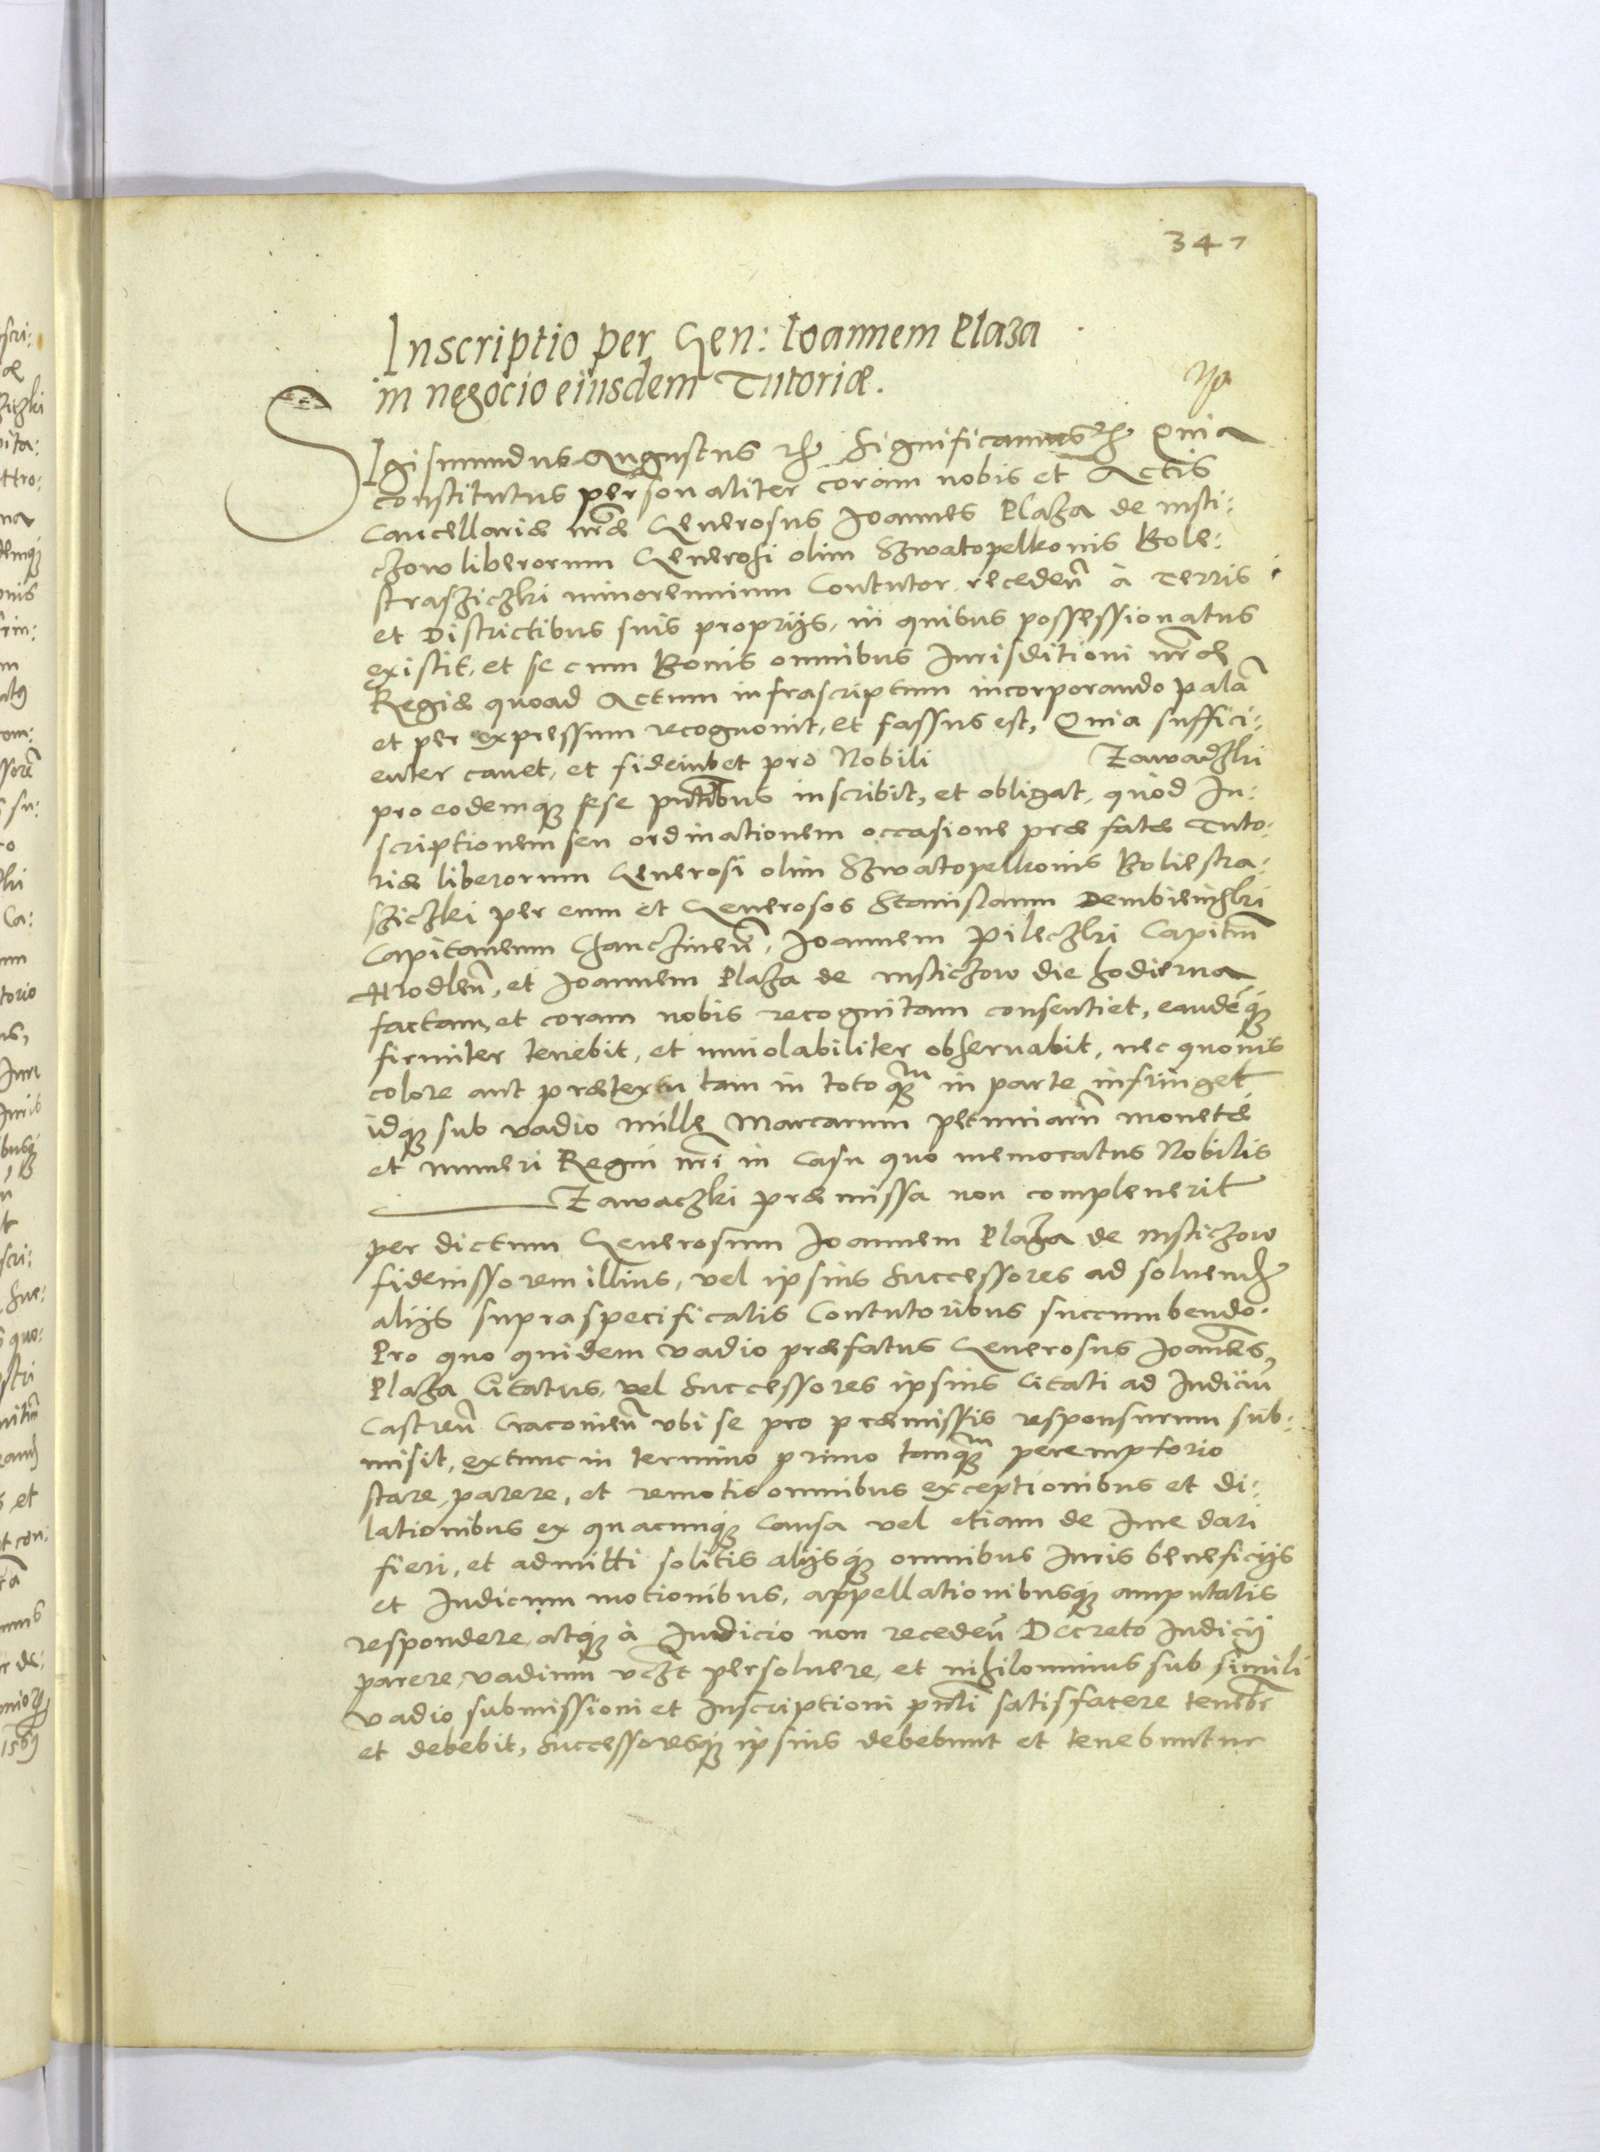 347
Inscriptio per Gen: Ioannem Plaza
in negocio eiusdem Tutoriæ.
Sigismundus Augustus etc̃ Significamus etc̃ Quia
constitutus personaliter coram nobis et Actis
Cancellariæ nr̃æ Generosus Joannes Plaza de Msti:
czow liberorum Generosi olim Szwatopelkonis Bole:
strasziczki minorennium Contutor recedeñ à Terris
et Districtibus suis proprijs, in quibus possessionatus
existit, et se cum Bonis omnibus Jurisditioni nr̃æ
Regiæ quoad Actum infrascriptum incorporando palã
et per expressum recognouit, et fassus est, Quia suffici:
enter cauet, et fideiubet pro Nobili Zawadzki
pro eodemq; sese pñtibus inscribit, et obligat, quòd In:
scriptionem seu ordinationem occasione præfatæ Tuto:
riæ liberorum Generosi olim Szwatopelkonis Boliestra:
sziczki per eum et Generosos Stanislaum Dembienszki
Capitaneum Chęnczineñ, Joannem Pileczki Capitm̃
Hrodleñ, et Joannem Plaza de Msticzow die hodierna
factam, et coram nobis recognitam consentiet, eandẽq;
firmiter tenebit, et inuiolabiliter obseruabit, nec quouis
colore aut prætextu tam in toto q̃m in parte infringet
idq; sub vadio mille Marcarum pecuniarũ monetæ
et numeri Regni nr̃i in casu quo memoratus Nobilis
Zawaczki præmissa non compleuerit
per dictum Generosum Joannem Plaza de Msticzow
fideiussorem illius, vel ipsius Successores ad soluend̃
alijs supraspecificatis Contutoribus succumbendo.
Pro quo quidem vadio præfatus Generosus Joañes
Plaza Citatus, vel Successores ipsius Citati ad Judiciũ
Castreñ Cracouieñ vbi se pro præmissis responsurum sub:
misit, extunc in termino primo tanq̃m peremptorio
stare, parere, et remotis omnibus exceptionibus et di:
lationibus ex quacunq; causa vel etiam de Jure dari
fieri, et admitti solitis alijsq; omnibus Juris beneficijs
et Judicum motionibus, appellationibusq; amputatis
respondere, atq; à Judicio non recedeñ Decreto Judicij
parere, vadium vc̃zt persoluere, et nihilominus sub simili
vadio submissioni et Inscriptioni pñti satisfacere tenebr̃
et debebit, Successoresq; ipsius debebunt et tenebuntur